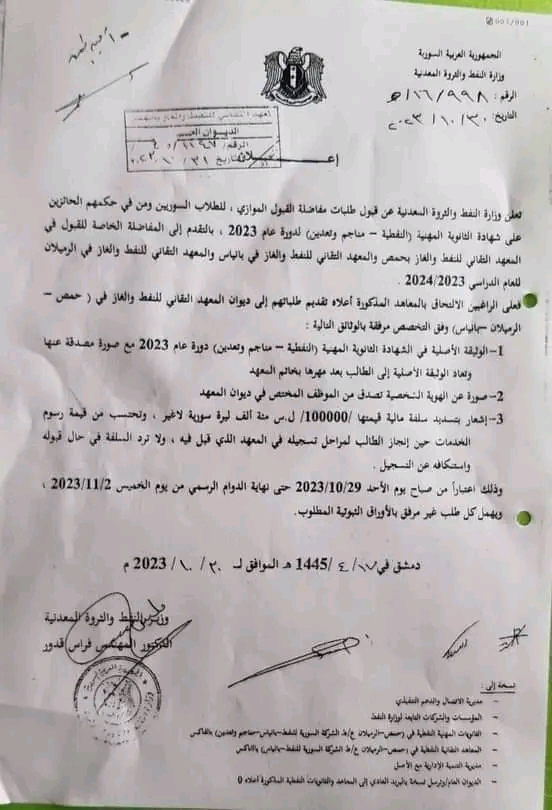 001/001
الجمهورية العربية السورية
وزارة النفط والثروة المعدنية
الرقم: ٩٩٨/١٦/ص
التاريخ: ٢٠٢٣/١٠/٣٠
الديوان العام
الرقم/
التاريخ ٣١
إعـــلان
تعلن وزارة النفط والثروة المعدنية عن قبول طلبات مفاضلة القبول الموازي ، للطلاب السوريين ومن في حكمهم الحائزين
على شهادة الثانوية المهنية (النفطية – مناجم وتعدين) لدورة عام 2023 ، بالتقدم إلى المفاضلة الخاصة للقبول في
المعهد التقاني للنفط والغاز بحمص والمعهد التقاني للنفط والغاز في بانياس والمعهد التقاني للنفط والغاز في الرميلان
للعام الدراسي 2024/2023 .
فعلى الراغبين الالتحاق بالمعاهد المذكورة أعلاه تقديم طلباتهم إلى ديوان المعهد التقاني للنفط والغاز في ( حمص –
الرميلان –بانياس) وفق التخصص مرفقة بالوثائق التالية :
1-الوثيقة الأصلية في الشهادة الثانوية المهنية (النفطية – مناجم وتعدين) دورة عام 2023 مع صورة مصدقة عنها
وتعاد الوثيقة الأصلية إلى الطالب بعد مهرها بخاتم المعهد
2- صورة عن الهوية الشخصية تصدق من الموظف المختص في ديوان المعهد
3-إشعار بتسديد سلفة مالية قيمتها /100000/ ل.س مئة ألف ليرة سورية لاغير ، وتحتسب من قيمة رسوم
الخدمات حين إنجاز الطالب لمراحل تسجيله في المعهد الذي قبل فيه ، ولا ترد السلفة في حال قبوله
واستنكافه عن التسجيل .
وذلك اعتباراً من صباح يوم الأحد 2023/10/29 حتى نهاية الدوام الرسمي من يوم الخميس 2023/11/2 ،
ويهمل كل طلب غير مرفق بالأوراق الثبوتية المطلوب.
دمشق في ١٧/ ٤ /1445 هـ الموافق لـ ٣٠ / ١٠ / 2023 م
وزير النفط والثروة المعدنية
الدكتور المهندس فراس قدور
نسخة إلى :
– مديرية الاتصال والدعم التنفيذي
– المؤسسات والشركات التابعة لوزارة النفط
– الثانويات المهنية النفطية في (حمص–الرميلان ع/ط الشركة السورية للنفط–بانياس–مناجم وتعدين) بالفاكس
– المعاهد التقانية النفطية في (حمص–الرميلان ع/ط الشركة السورية للنفط–بانياس) بالفاكس
– مديرية التنمية الإدارية مع الأصل
– الديوان العام/ويرسل نسخة بالبريد العادي إلى المعاهد والثانويات النفطية المذكورة أعلاه 0